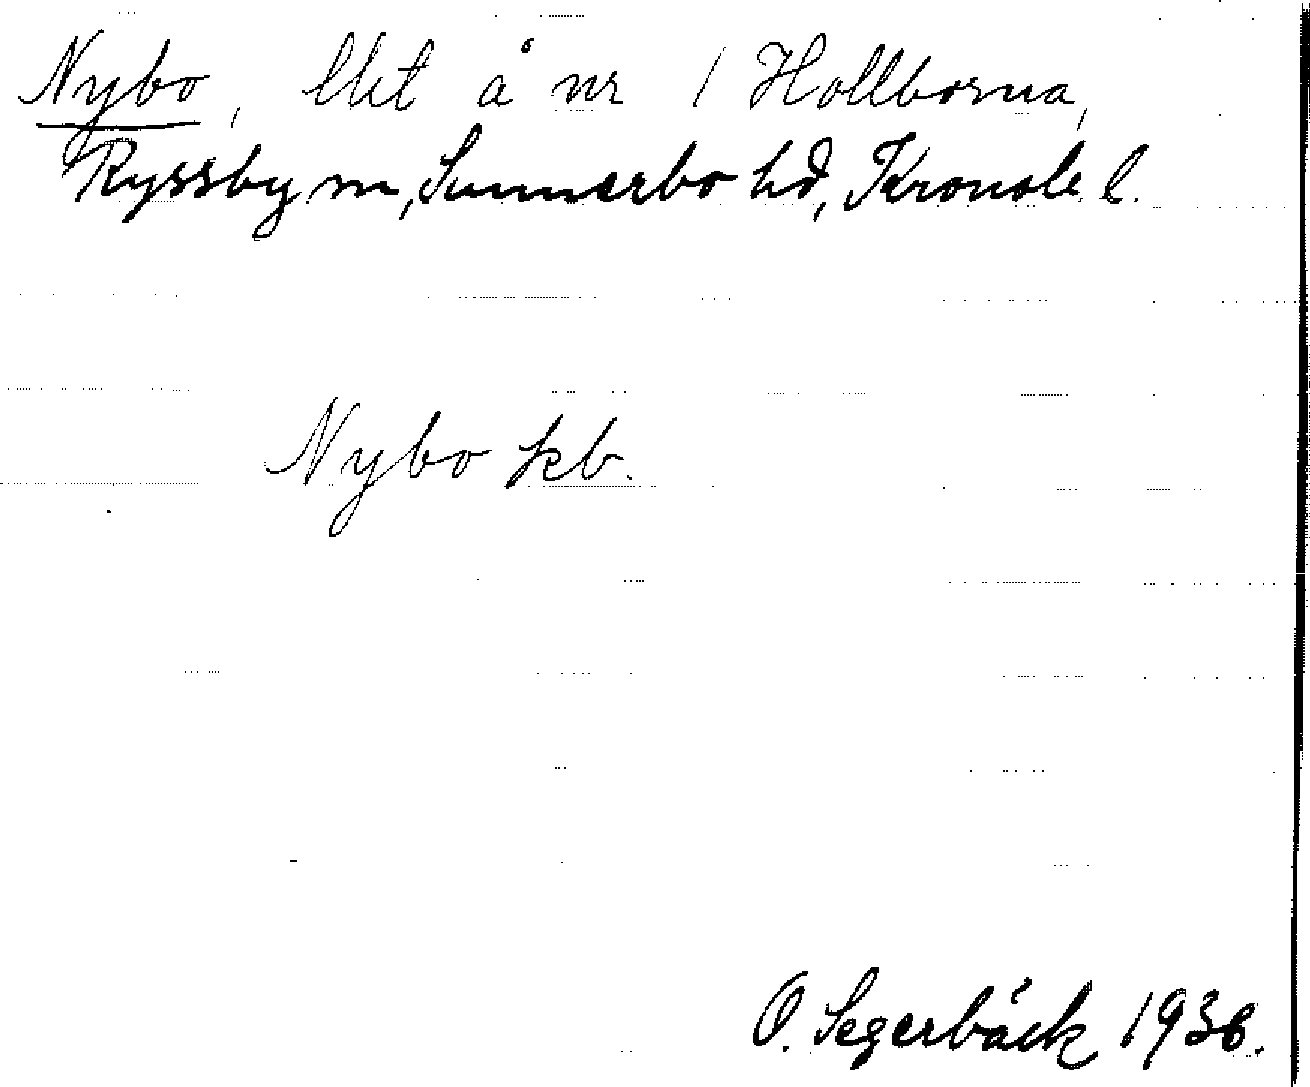 Nybo, lht å nr 1 Hollborna,
Ryssby sn, Sunnerbo hd, Kronob. l.
Nybo kb.
O. Segerbäck 1936.